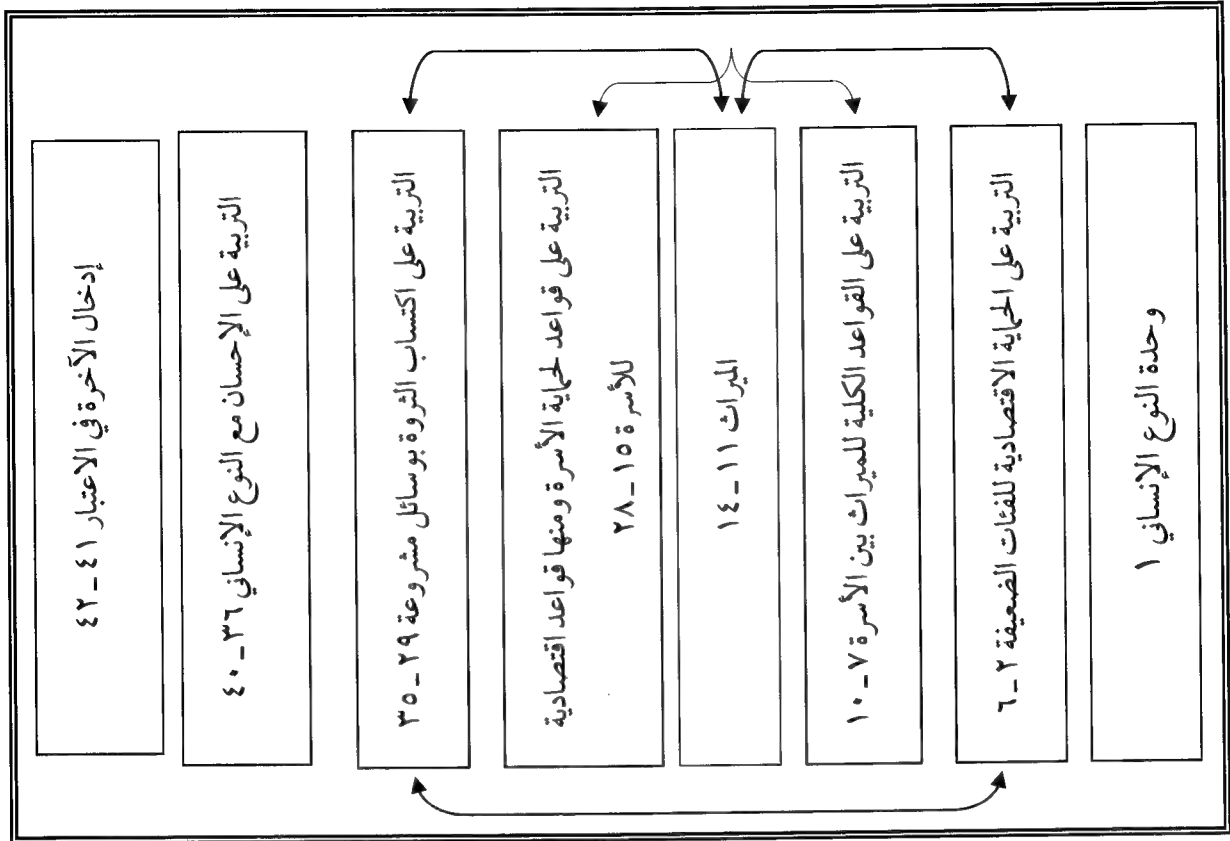 وحدة النوع الإنساني ١
التربية على الحماية الاقتصادية للفئات الضعيفة ٢_٦
التربية على القواعد الكلية للميراث بين الأسرة ٧_١٠
الميراث ١١_١٤
التربية على قواعد لحماية الأسرة ومنها قواعد اقتصادية
للأسرة ١٥_٢٨
التربية على اكتساب الثروة بوسائل مشروعة ٢٩_٣٥
التربية على الإحسان مع النوع الإنساني ٣٦_٤٠
إدخال الآخرة في الاعتبار ٤١_٤٢